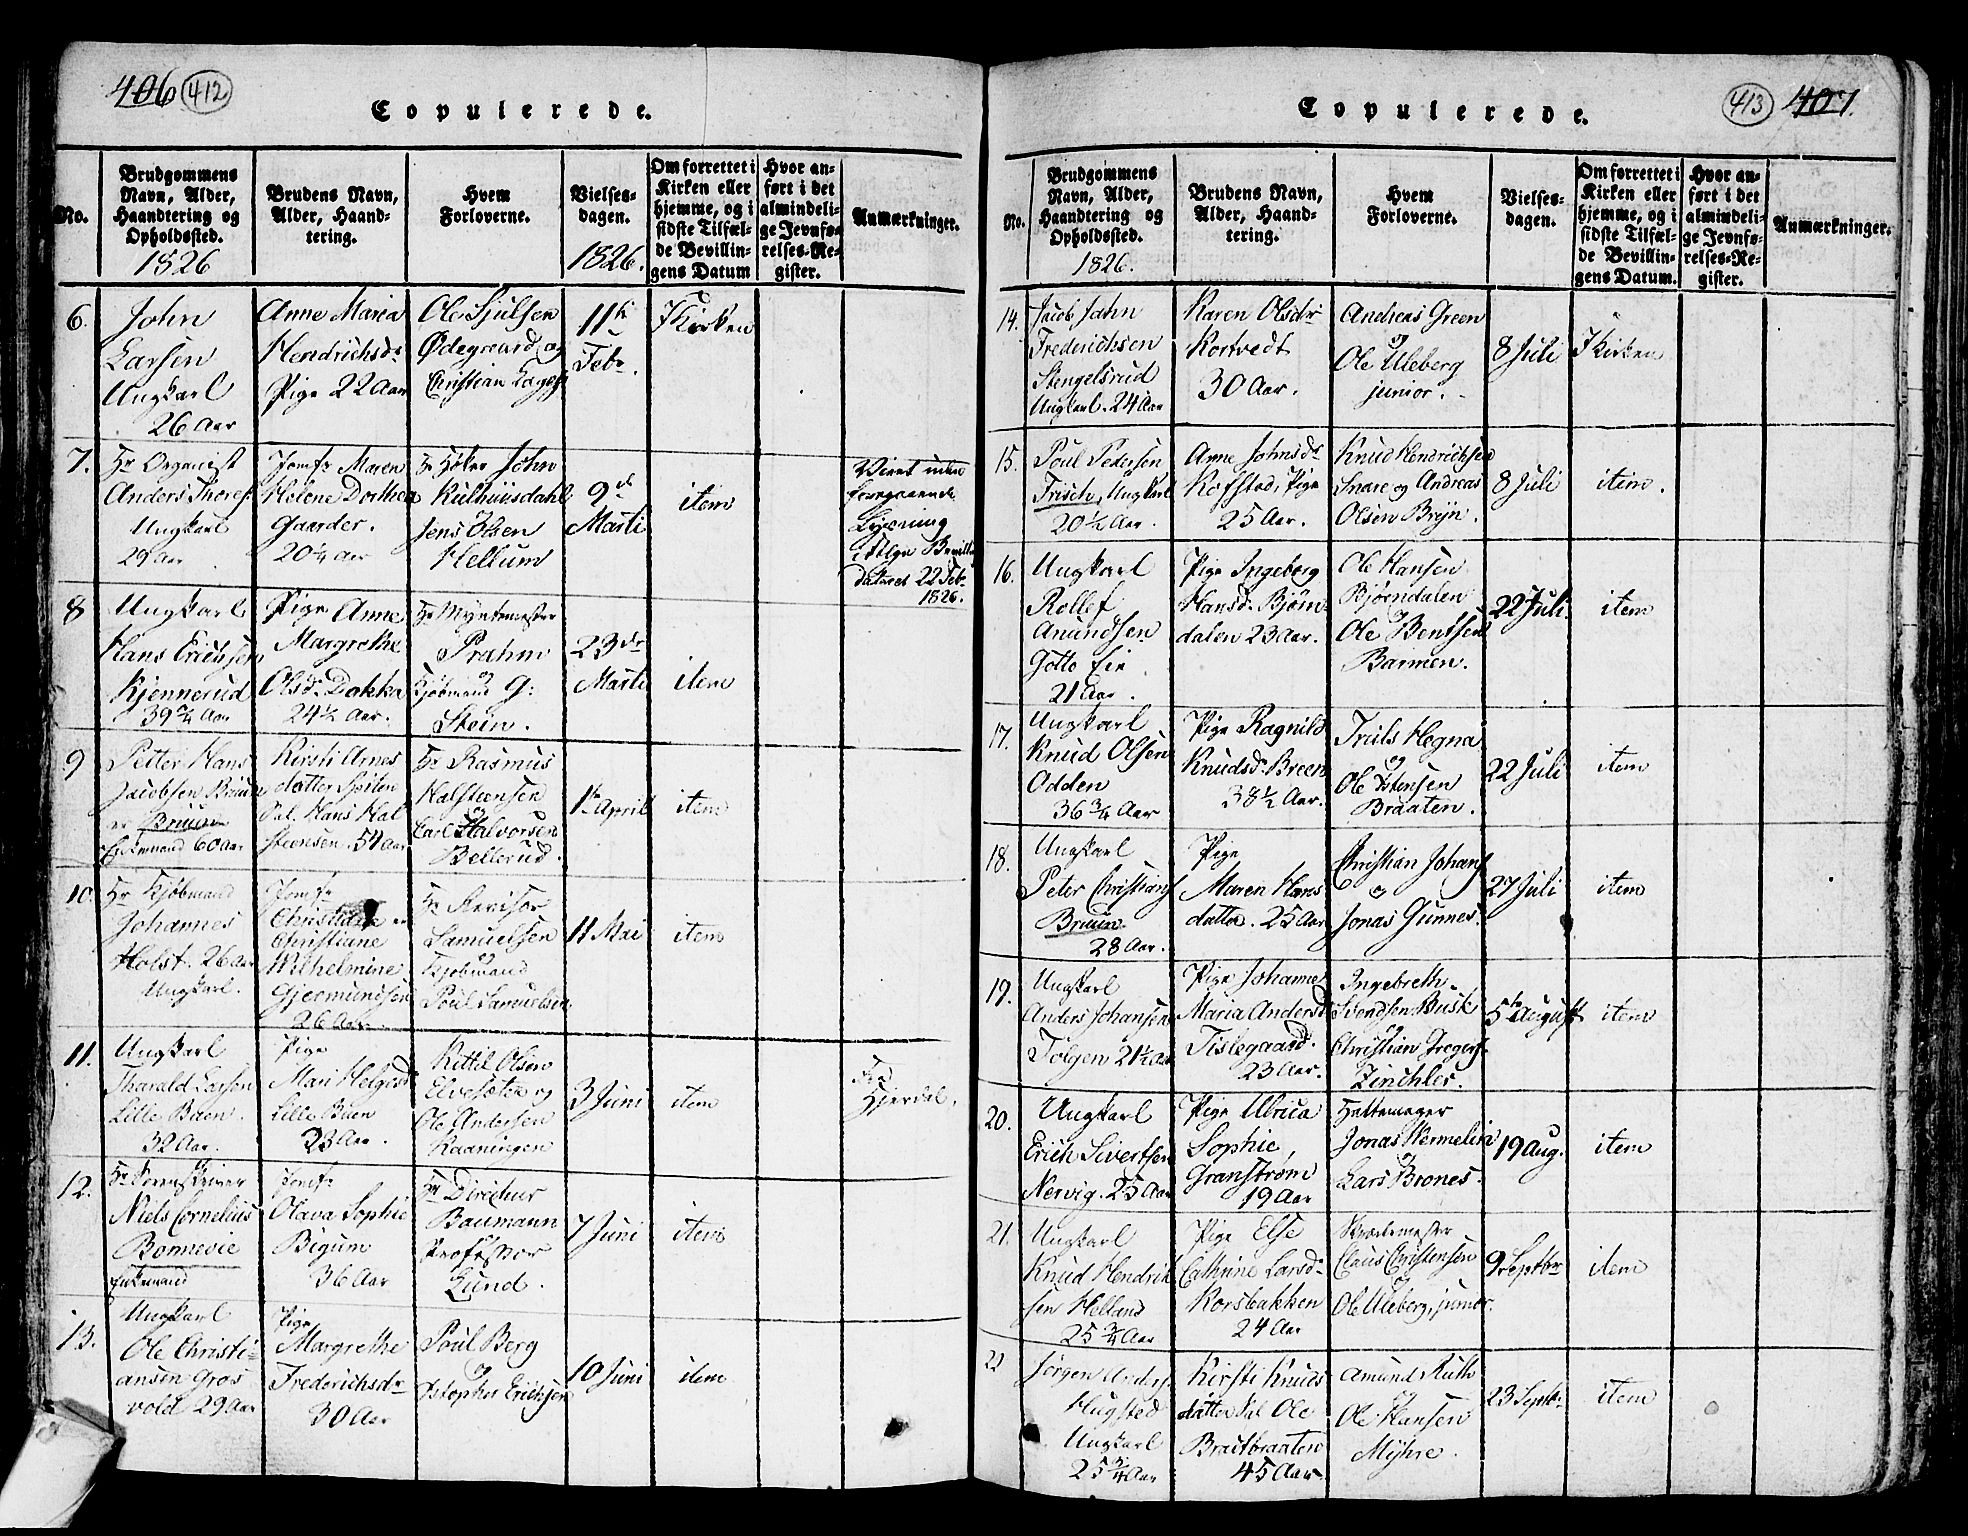 406 412
Copulerede.
No.
Brudgommens
Navn, Alder,
Haandtering og
Opholdssted.
1826
Brudens Navn,
Alder, Haand-
tering.
Hvem
Forloverne.
Vielses-
dagen.
1826.
Om forrettet i
Kirken eller
hjemme, og i
sidste Tilfæl-
de Bevillin-
gens Datum
Hvor an-
ført i det
almindeli-
ge Jevnfø-
relses-Re-
gister.
Anmærkninger.
6.
John
Larsen
Ungkarl
26 Aar
Anne Maria
Hendrichsdr
Pige 22 Aar
Ole Sjulsen
Ødegaard og
Christian
11te
Febr.
I Kirken
7.
Hr Organist
Anders Thores
Ungkarl
29 Aar
Jomfr Maren
Helene Dorthea
Gaarder.
20¼ Aar
Hr Høker John
Kulhuusdahl
Jens Olsen
Hellum
9de
Marti
item
Viet uden
foregaaende
Lysning
ifølge Bevilling
dateret 22 Feb.
1826.
8
Ungkarl
Hans Erichsen
Kjennerud
39 ¾ Aar
Pige Anne
Margrethe
Olsdr Dokka
24½ Aar.
Hr Myntmester
Prahm
og
Kjøbmand G:
Stein.
23de
Marti
item
9
Petter Hans
Jacobsen
er Bruun
Enkemand 60 Aar
Kirsti Arnes
datter
Sal. Hans Hal
Steensen. 54 Aar
Hr Rasmus
Halsteensen
og
Carl Halvorsen
Bellerud.
1te April
item
10.
Hr Kjøbmand
Johannes
Holst. 26 Aar
Ungkarl.
Jomfr
Christiane
Wilhelmine
Gjermundsen
26 Aar.
Hr Revisor
Samuelsen
og
Kjøbmand
Poul Samuelsen
11 Mai
item
11.
Ungkarl
Tharald Larsen
Lille Buen.
32 Aar.
Pige
Mari Helgesd
Lille Buen
23 Aar.
Kittil Olsen
Elvesæter og
Ole Andersen
Kaaningen
3 Juni
item
Fra
Hjerdal.
12.
Hr Sorenskriver
Niels Cornelius
Bonnevie
Enkemand
Jomfr
Olava Sophie
Bigum
36 Aar
Hr Directeur
Baumann
Professor
Lund.
7 Juni
item
13.
Ungkarl
Ole Christi-
ansen Gros
vold 29 Aar
Pige
Margrethe
Frederichsdr
30 Aar
Poul Berg
og
Christopher Erichsen
10 Juni
item
413 407.
Copulerede.
No.
Brudgommens
Navn, Alder,
Haandtering og
Opholdssted.
1826.
Brudens Navn,
Alder, Haand-
tering.
Hvem
Forloverne.
Vielses-
dagen.
Om forrettet i
Kirken eller
hjemme, og i
sidste Tilfæl-
de Bevillin-
gens Datum.
Hvor an-
ført i det
almindeli-
ge Jevnfø-
relses-Re-
gister.
Anmærkninger.
14.
Jacob John
Frederichsen
Stengelsrud
Ungkarl. 24 Aar
Karen Olsdr
Kortvedt
30 Aar.
Andreas Green
og
Ole Uleberg
junior.
8 Juli
I Kirken
15.
Poul Pedersen
Frisch, Ungkarl
20½ Aar.
Anne Johnsdr
Kofstad, Pige
25 Aar.
Knud Hendrichsen
Snare og Andreas
Olsen Bryn.
8 Juli
item.
16.
Ungkarl
Rollef
Anundsen
Gotto Eie
21 Aar.
Pige Ingeborg
Hansdr Bjørn
dalen 23 Aar.
Ole Hansen
Bjørndalen
Ole Bentsen
Barmen.
22 Juli.
item
17.
Ungkarl
Knud Olsen
Odden
36 ¾ Aar
Pige Ragnild
Knudsdr Breen
38½ Aar.
Truls Hegna
og
Ole Ostensen
Braaten.
22 Juli
item
18.
Ungkarl
Peter Christians
Bruun
28 Aar.
Pige
Maren Hans
datter. 25 Aar
Christian Johans
og
Jonas Gunnes.
27 Juli
item
19.
Ungkarl
Anders Johansen
Tolgen 21½ Aar
Pige Johanne
Maria Andersd
Tislegaard.
23 Aar.
Ingebreth
Svendsen Busk
og
Christian Gregers
Zinchler.
5te August
item
20.
Ungkarl
Erich Sivertsen
Nervig. 25 Aar
Pige Ulrica
Sophie,
Granstrøm
19 Aar
Hattemager
Jonas Wermelin
og
Lars Brones.
19 Aug.
item
21.
Ungkarl
Knud Hendrik
sen Helland
25 ¾ Aar
Pige Else
Cathrine Larsdr
Korsbakken
24 Aar
Claus Christensen
og
Ole Uleberg, junior.
9 Septbr
item
22
Jørgen Anders
Hugsted
Ungkarl
25 ¾ Aar
Kirsti Knuds
datter Sal Ole
Brautbraaten
45 Aar.
Amund Ruth
og
Ole Hansen
Myhre.
23 Septbr
item